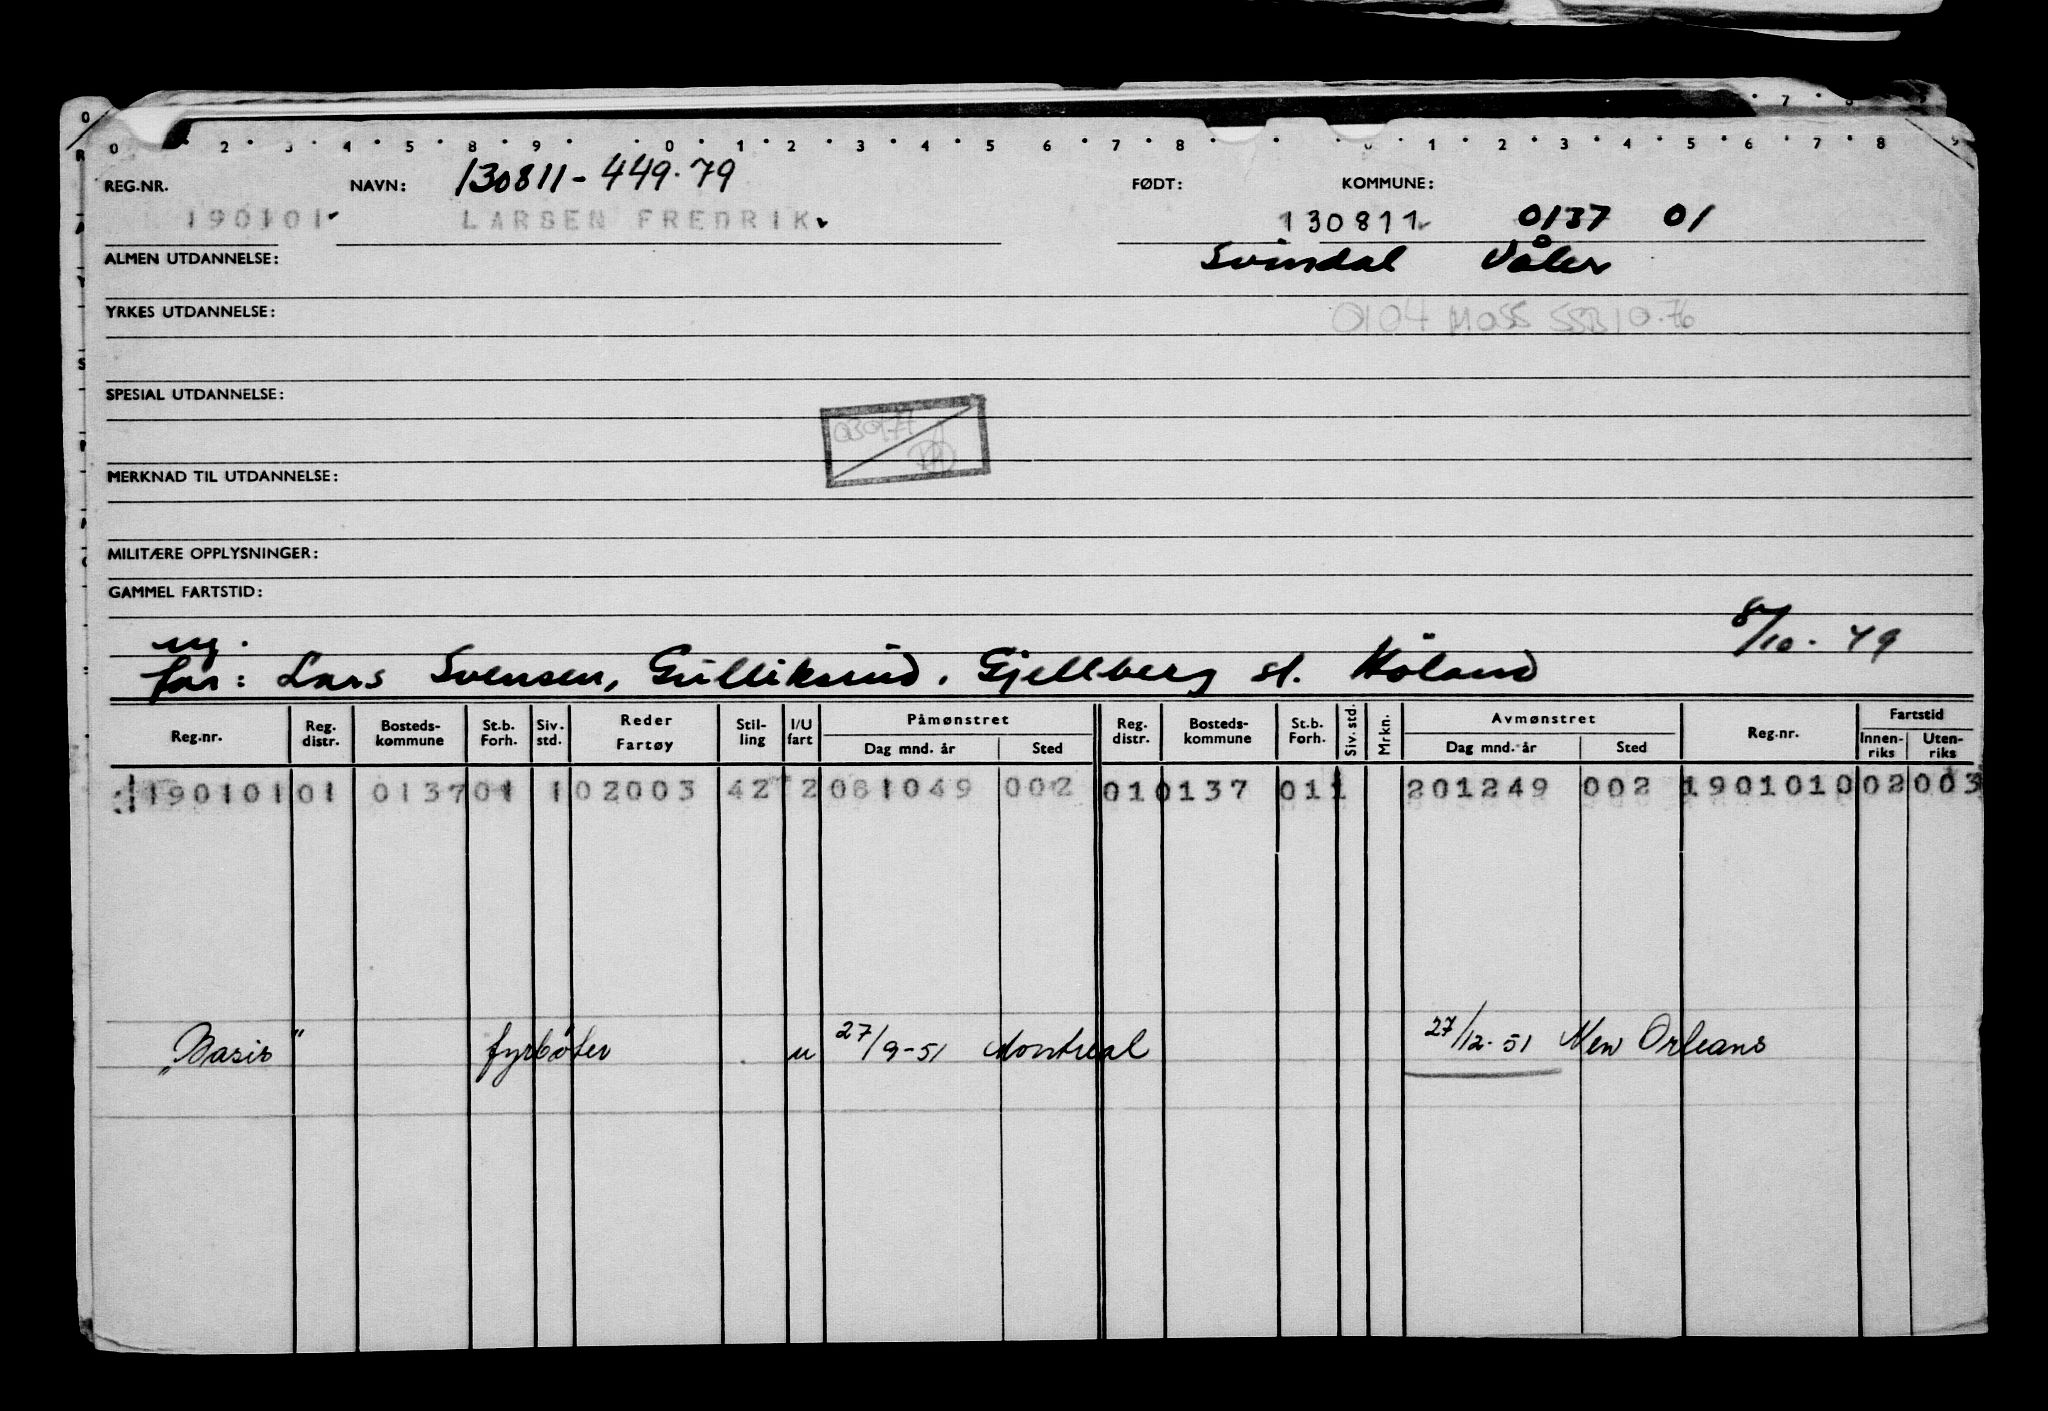 130811-449.79
REG.NR. NAVN: FØDT: KOMMUNE:
190101 LARSEN FREDRIK 130811 0137 01
ALMEN UTDANNELSE: Svindal Våler
YRKES UTDANNELSE: 0104 MOSS SSB 10.76
SPESIAL UTDANNELSE:
MERKNAD TIL UTDANNELSE:
MILITÆRE OPPLYSNINGER:
GAMMEL FARTSTID:
ug. 8/10-49
far: Lars Svensen, Gulliksrud, Gjellberg st. Höland
Reg.nr. Reg. distr. Bosteds-kommune St.b. Forh. Siv. std. Reder Fartøy Stil-ling I/U fart Påmønstret Dag mnd. år Sted Reg. distr. Bosteds-kommune St.b. Forh. Siv. std. Mrkn. Avmønstret Dag mnd. år Sted Reg.nr. Fartstid Innen-riks Uten-riks
190101 01 0137 01 1 02003 42 2 081049 002 01 0137 01 1 201249 002 1901010 02 003
"Basis" fyrbøter u 27/9-51 Montreal 27/12-51 New Orleans